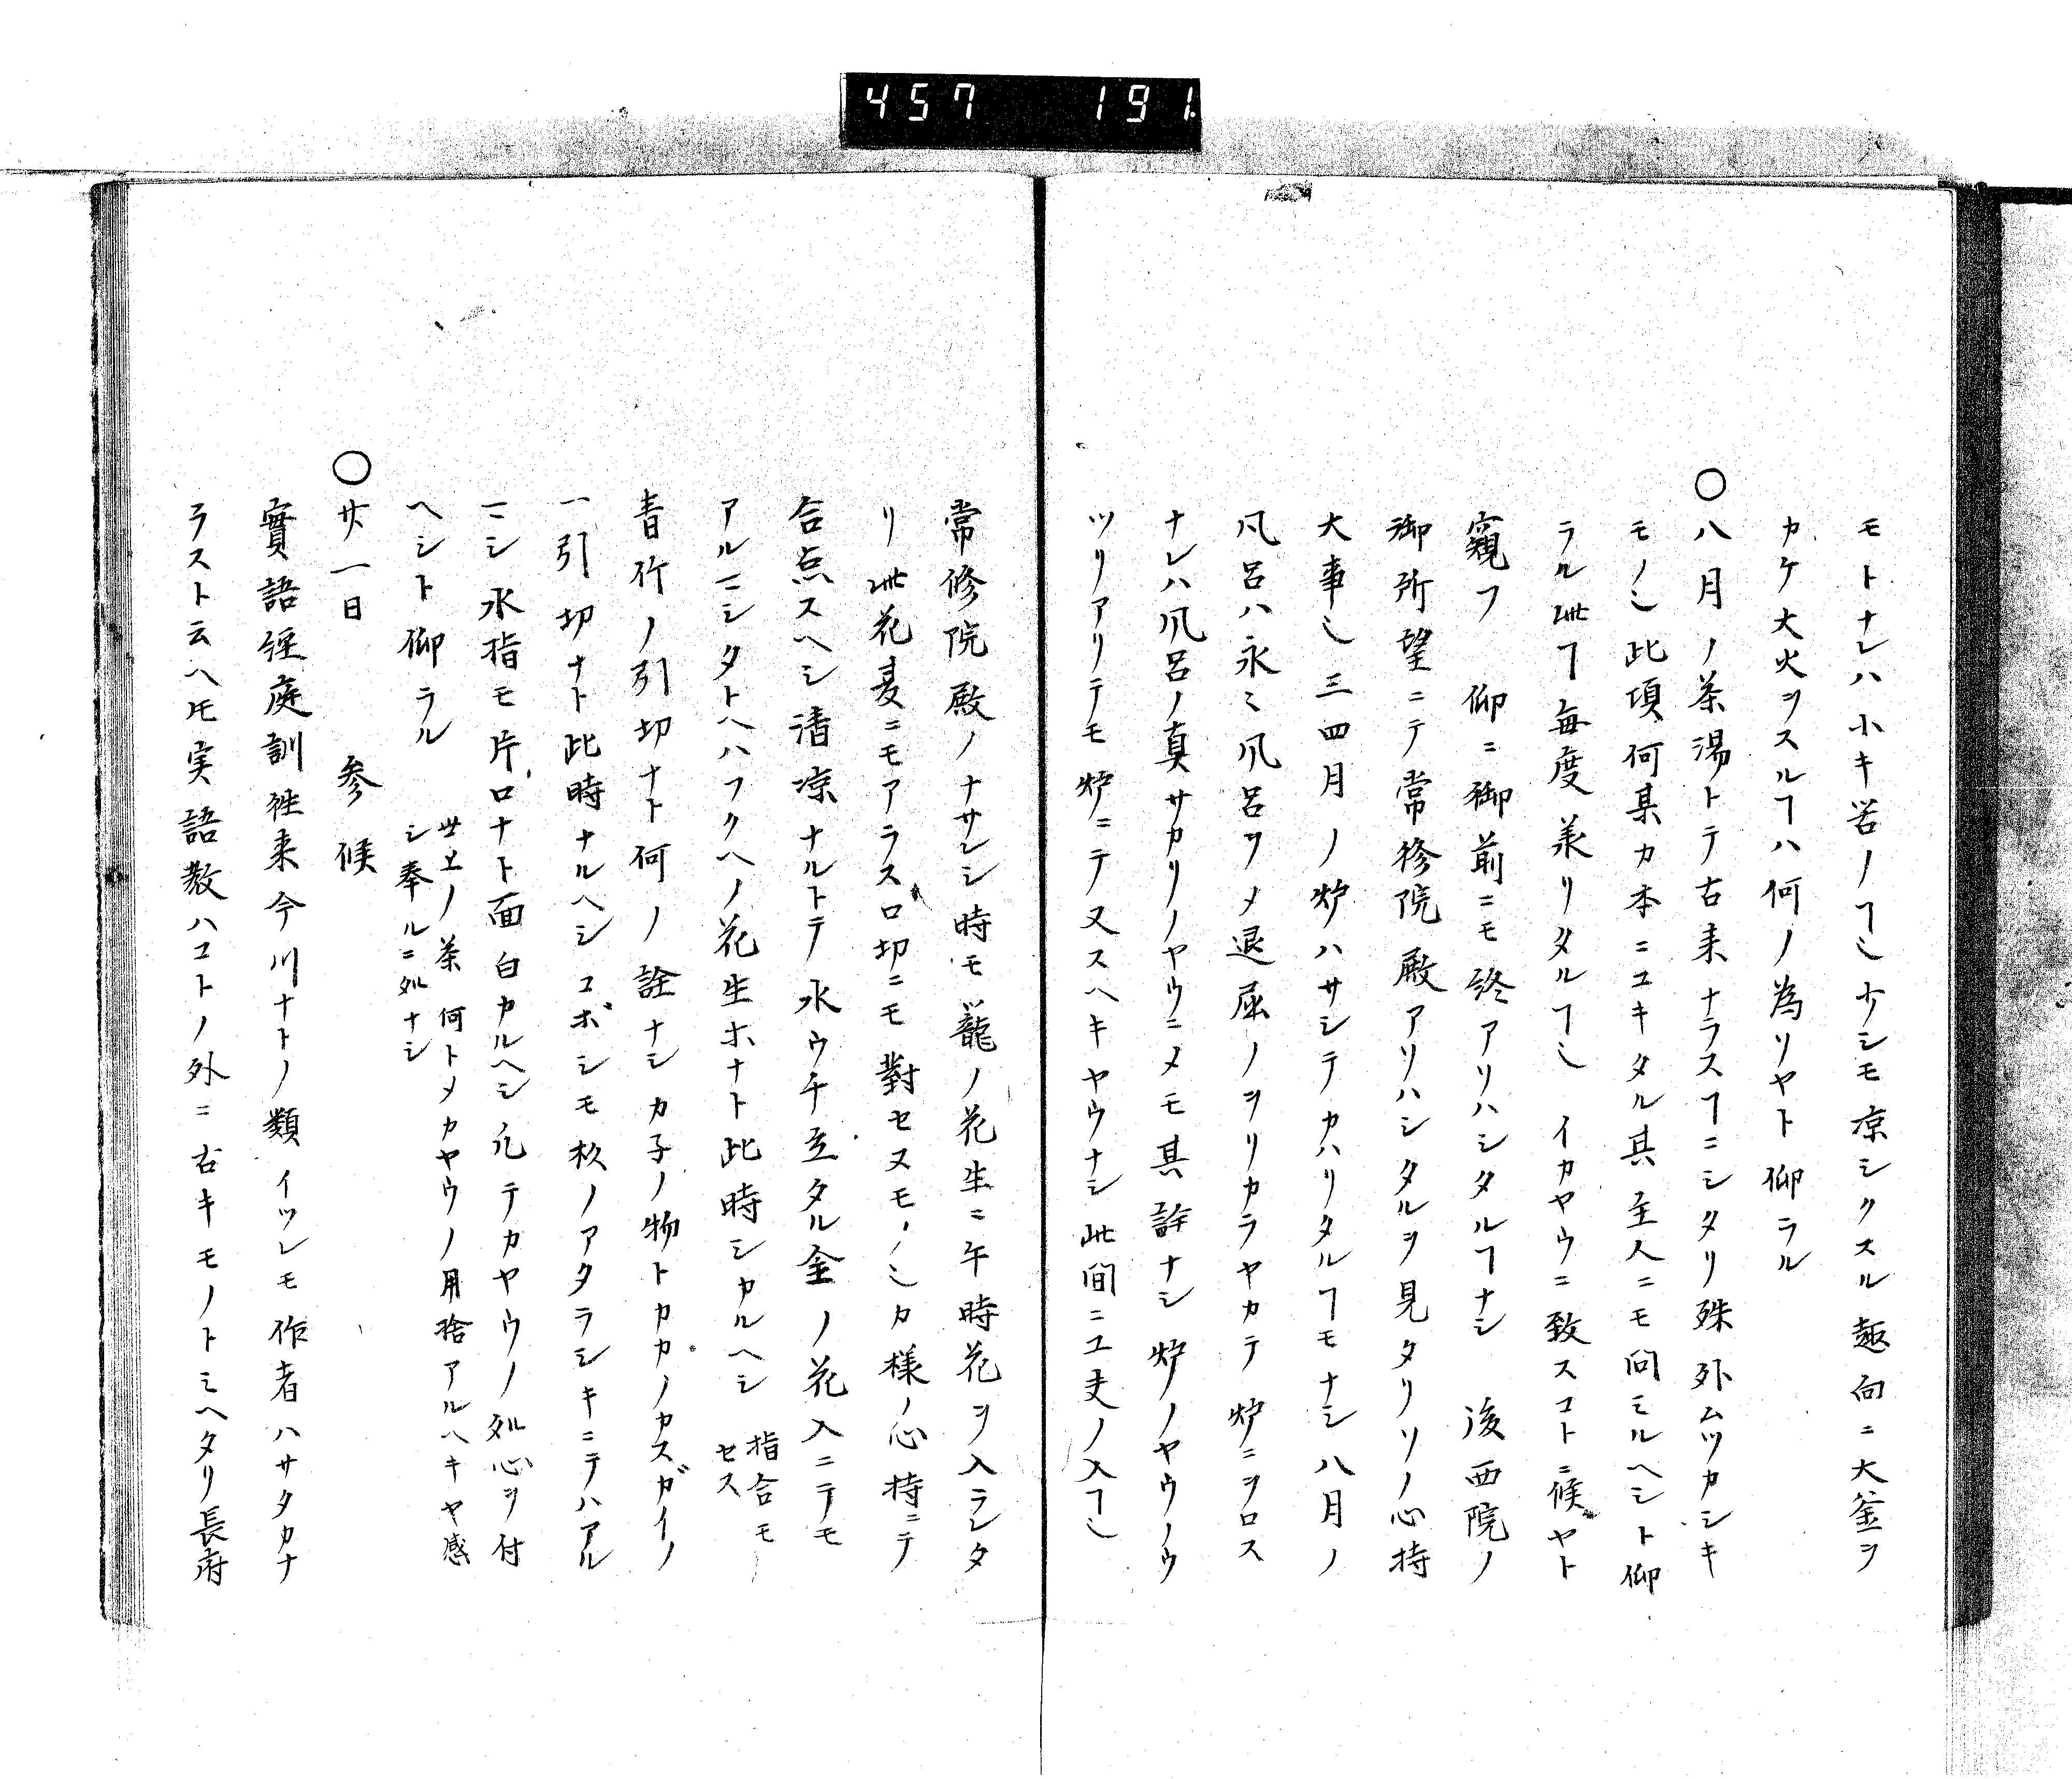 457 191
モトナレハ小キ苦ノヿ也少シモ凉シクスル趣向ニ大釜ヲ
カケ大火ヲスルヿハ何ノ為ソヤト仰ラル
〇八月ノ茶湯トテ古来ナラスヿニシタリ殊外ムツカシキ
モノ也此頃何某カ本ニユキタル其主人ニモ問ミルヘシト仰
ラル此ヿ毎度承リタルヿ也イカヤウニ致スコトニ候ヤト
窺フ 仰ニ御前ニモ終アリハシタルヿナシ 後西院ノ
御所望ニテ常修院殿アリハシタルヲ見タリソノ心持
大事也三四月ノ炉ハサシテカハリタルヿモナシ八月ノ
凡呂ハ永〻凡呂ヲメ退屈ノヲリカラヤカテ炉ニヲロス
ナレハ凡呂ノ真サカリノヤウニメモ其詮ナシ炉ノヤウノウ
ツリアリテモ炉ニテ又スヘキヤウナシ此間ニ工夫ノ入ヿ也
常修院殿ノナサレシ時モ籠ノ花生ニ午時花ヲ入ラレタ
リ此花夏ニモアラス口切ニモ對セヌモノ也カ様ノ心持ニテ
合点スヘシ清凉ナルトテ水ウチ立タル金ノ花入ニテモ
アルマシタトハハフクヘノ花生ホナト此時シカルヘシ 指合モ
セス
青竹ノ引切ナト何ノ詮ナシカ子ノ物トカカノカスガイノ
一引切ナト此時ナルヘシコボシモ杉ノアタラシキニテハアル
マシ水指モ片口ナト面白カルヘシ凡テカヤウノ処心ヲ付
ヘシト仰ラル 世上ノ茶何トメカヤウノ用捨アルヘキヤ感
シ奉ルニ処ナシ
〇廿一日 参候
實語經庭訓往来今川ナトノ類イツレモ作者ハサタカナ
ラスト云ヘ𪜈実語教ハコトノ外ニ古キモノトミヘタリ長府